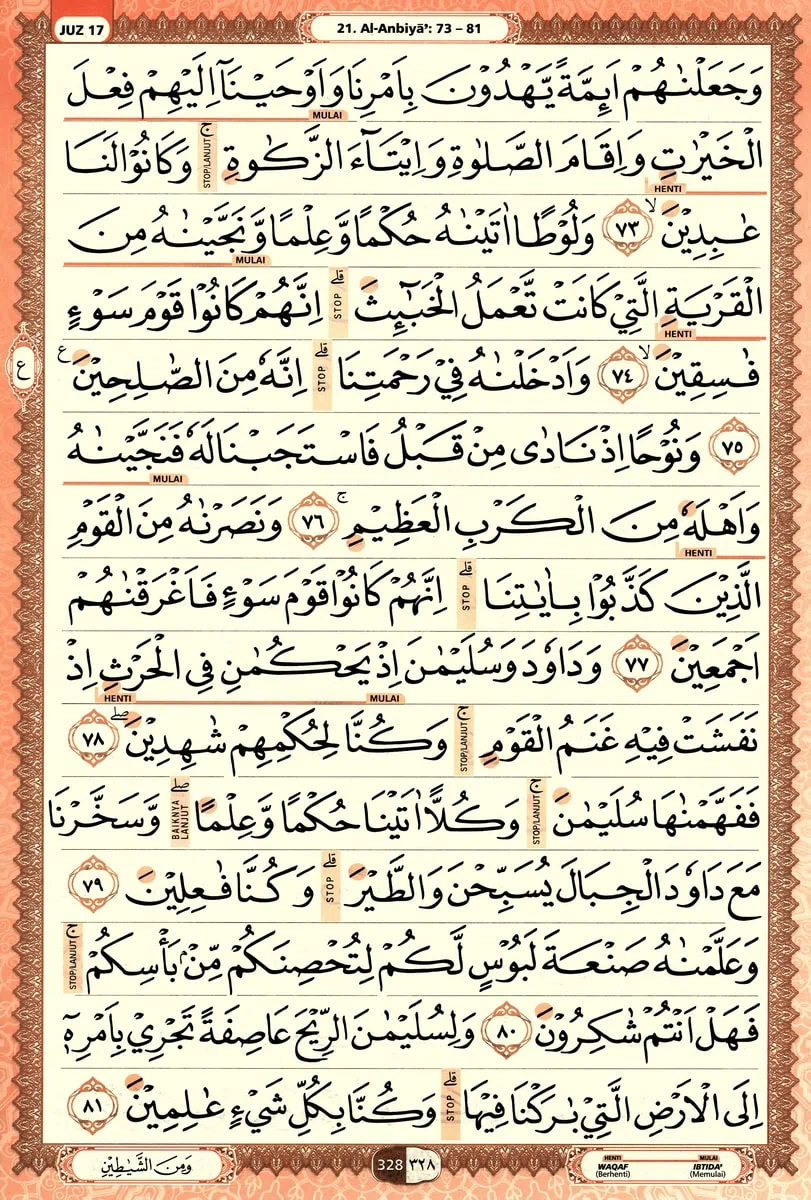 JUZ 17
21. Al-Anbiyā': 73 – 81
وَجَعَلْنٰهُمْ اَىِٕمَّةً يَّهْدُوْنَ بِاَمْرِنَا وَاَوْحَيْنَآ اِلَيْهِمْ فِعْلَ
MULAI
الْخَيْرٰتِ وَاِقَامَ الصَّلٰوةِ وَاِيْتَاۤءَ الزَّكٰوةِۚ وَكَانُوْا لَنَا
STOP/LANJUT
HENTI
عٰبِدِيْنَ ۙ ٧٣ وَلُوْطًا اٰتَيْنٰهُ حُكْمًا وَّعِلْمًا وَّنَجَّيْنٰهُ مِنَ
MULAI
الْقَرْيَةِ الَّتِيْ كَانَتْ تَّعْمَلُ الْخَبٰۤىِٕثَ ۗ اِنَّهُمْ كَانُوْا قَوْمَ سَوْءٍ
STOP
HENTI
فٰسِقِيْنَ ۙ ٧٤ وَاَدْخَلْنٰهُ فِيْ رَحْمَتِنَا ۗ اِنَّهٗ مِنَ الصّٰلِحِيْنَ ع
STOP
ع
٧٥ وَنُوْحًا اِذْ نَادٰى مِنْ قَبْلُ فَاسْتَجَبْنَا لَهٗ فَنَجَّيْنٰهُ
MULAI
وَاَهْلَهٗ مِنَ الْكَرْبِ الْعَظِيْمِ ۚ ٧٦ وَنَصَرْنٰهُ مِنَ الْقَوْمِ
HENTI
الَّذِيْنَ كَذَّبُوْا بِاٰيٰتِنَا ۗ اِنَّهُمْ كَانُوْا قَوْمَ سَوْءٍ فَاَغْرَقْنٰهُمْ
STOP
اَجْمَعِيْنَ ٧٧ وَدَاوٗدَ وَسُلَيْمٰنَ اِذْ يَحْكُمٰنِ فِى الْحَرْثِ اِذْ
MULAI HENTI
نَفَشَتْ فِيْهِ غَنَمُ الْقَوْمِۚ وَكُنَّا لِحُكْمِهِمْ شٰهِدِيْنَ ۖ ٧٨
STOP/LANJUT
فَفَهَّمْنٰهَا سُلَيْمٰنَۚ وَكُلًّا اٰتَيْنَا حُكْمًا وَّعِلْمًاۖ وَّسَخَّرْنَا
STOP/LANJUT BAIKNYA LANJUT
مَعَ دَاوٗدَ الْجِبَالَ يُسَبِّحْنَ وَالطَّيْرَۗ وَكُنَّا فٰعِلِيْنَ ٧٩
STOP
وَعَلَّمْنٰهُ صَنْعَةَ لَبُوْسٍ لَّكُمْ لِتُحْصِنَكُمْ مِّنْۢ بَأْسِكُمْۚ
STOP/LANJUT
فَهَلْ اَنْتُمْ شٰكِرُوْنَ ٨٠ وَلِسُلَيْمٰنَ الرِّيْحَ عَاصِفَةً تَجْرِيْ بِاَمْرِهٖٓ
اِلَى الْاَرْضِ الَّتِيْ بٰرَكْنَا فِيْهَاۗ وَكُنَّا بِكُلِّ شَيْءٍ عٰلِمِيْنَ ٨١
STOP
وَمِنَ الشَّيٰطِيْنِ
328 ٣٢٨
HENTI MULAI
WAQAF IBTIDA'
(Berhenti) (Memulai)